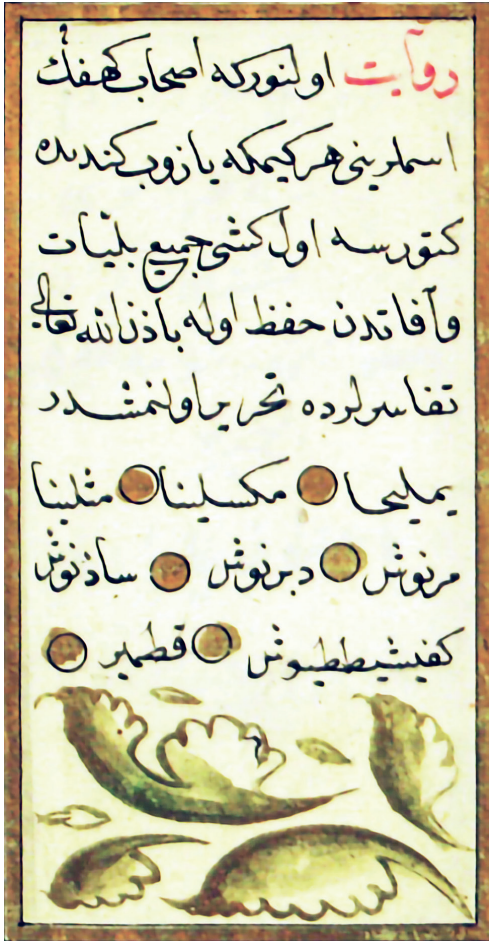 روآیت اولنورکه اصحاب کهفڭ
اسملرینی هر کیمکه یازوب کندیده
کتورسه اول کشی جمیع بلیّات
وآفاتدن حفظ اوله باذن الله تعالی
تفاسیرلرده تحریر اولنمشدر
یملیخا مکسلینا مثلینا
مرنوش دبرنوش ساذنوش
کفیشیططیوش قطمیر